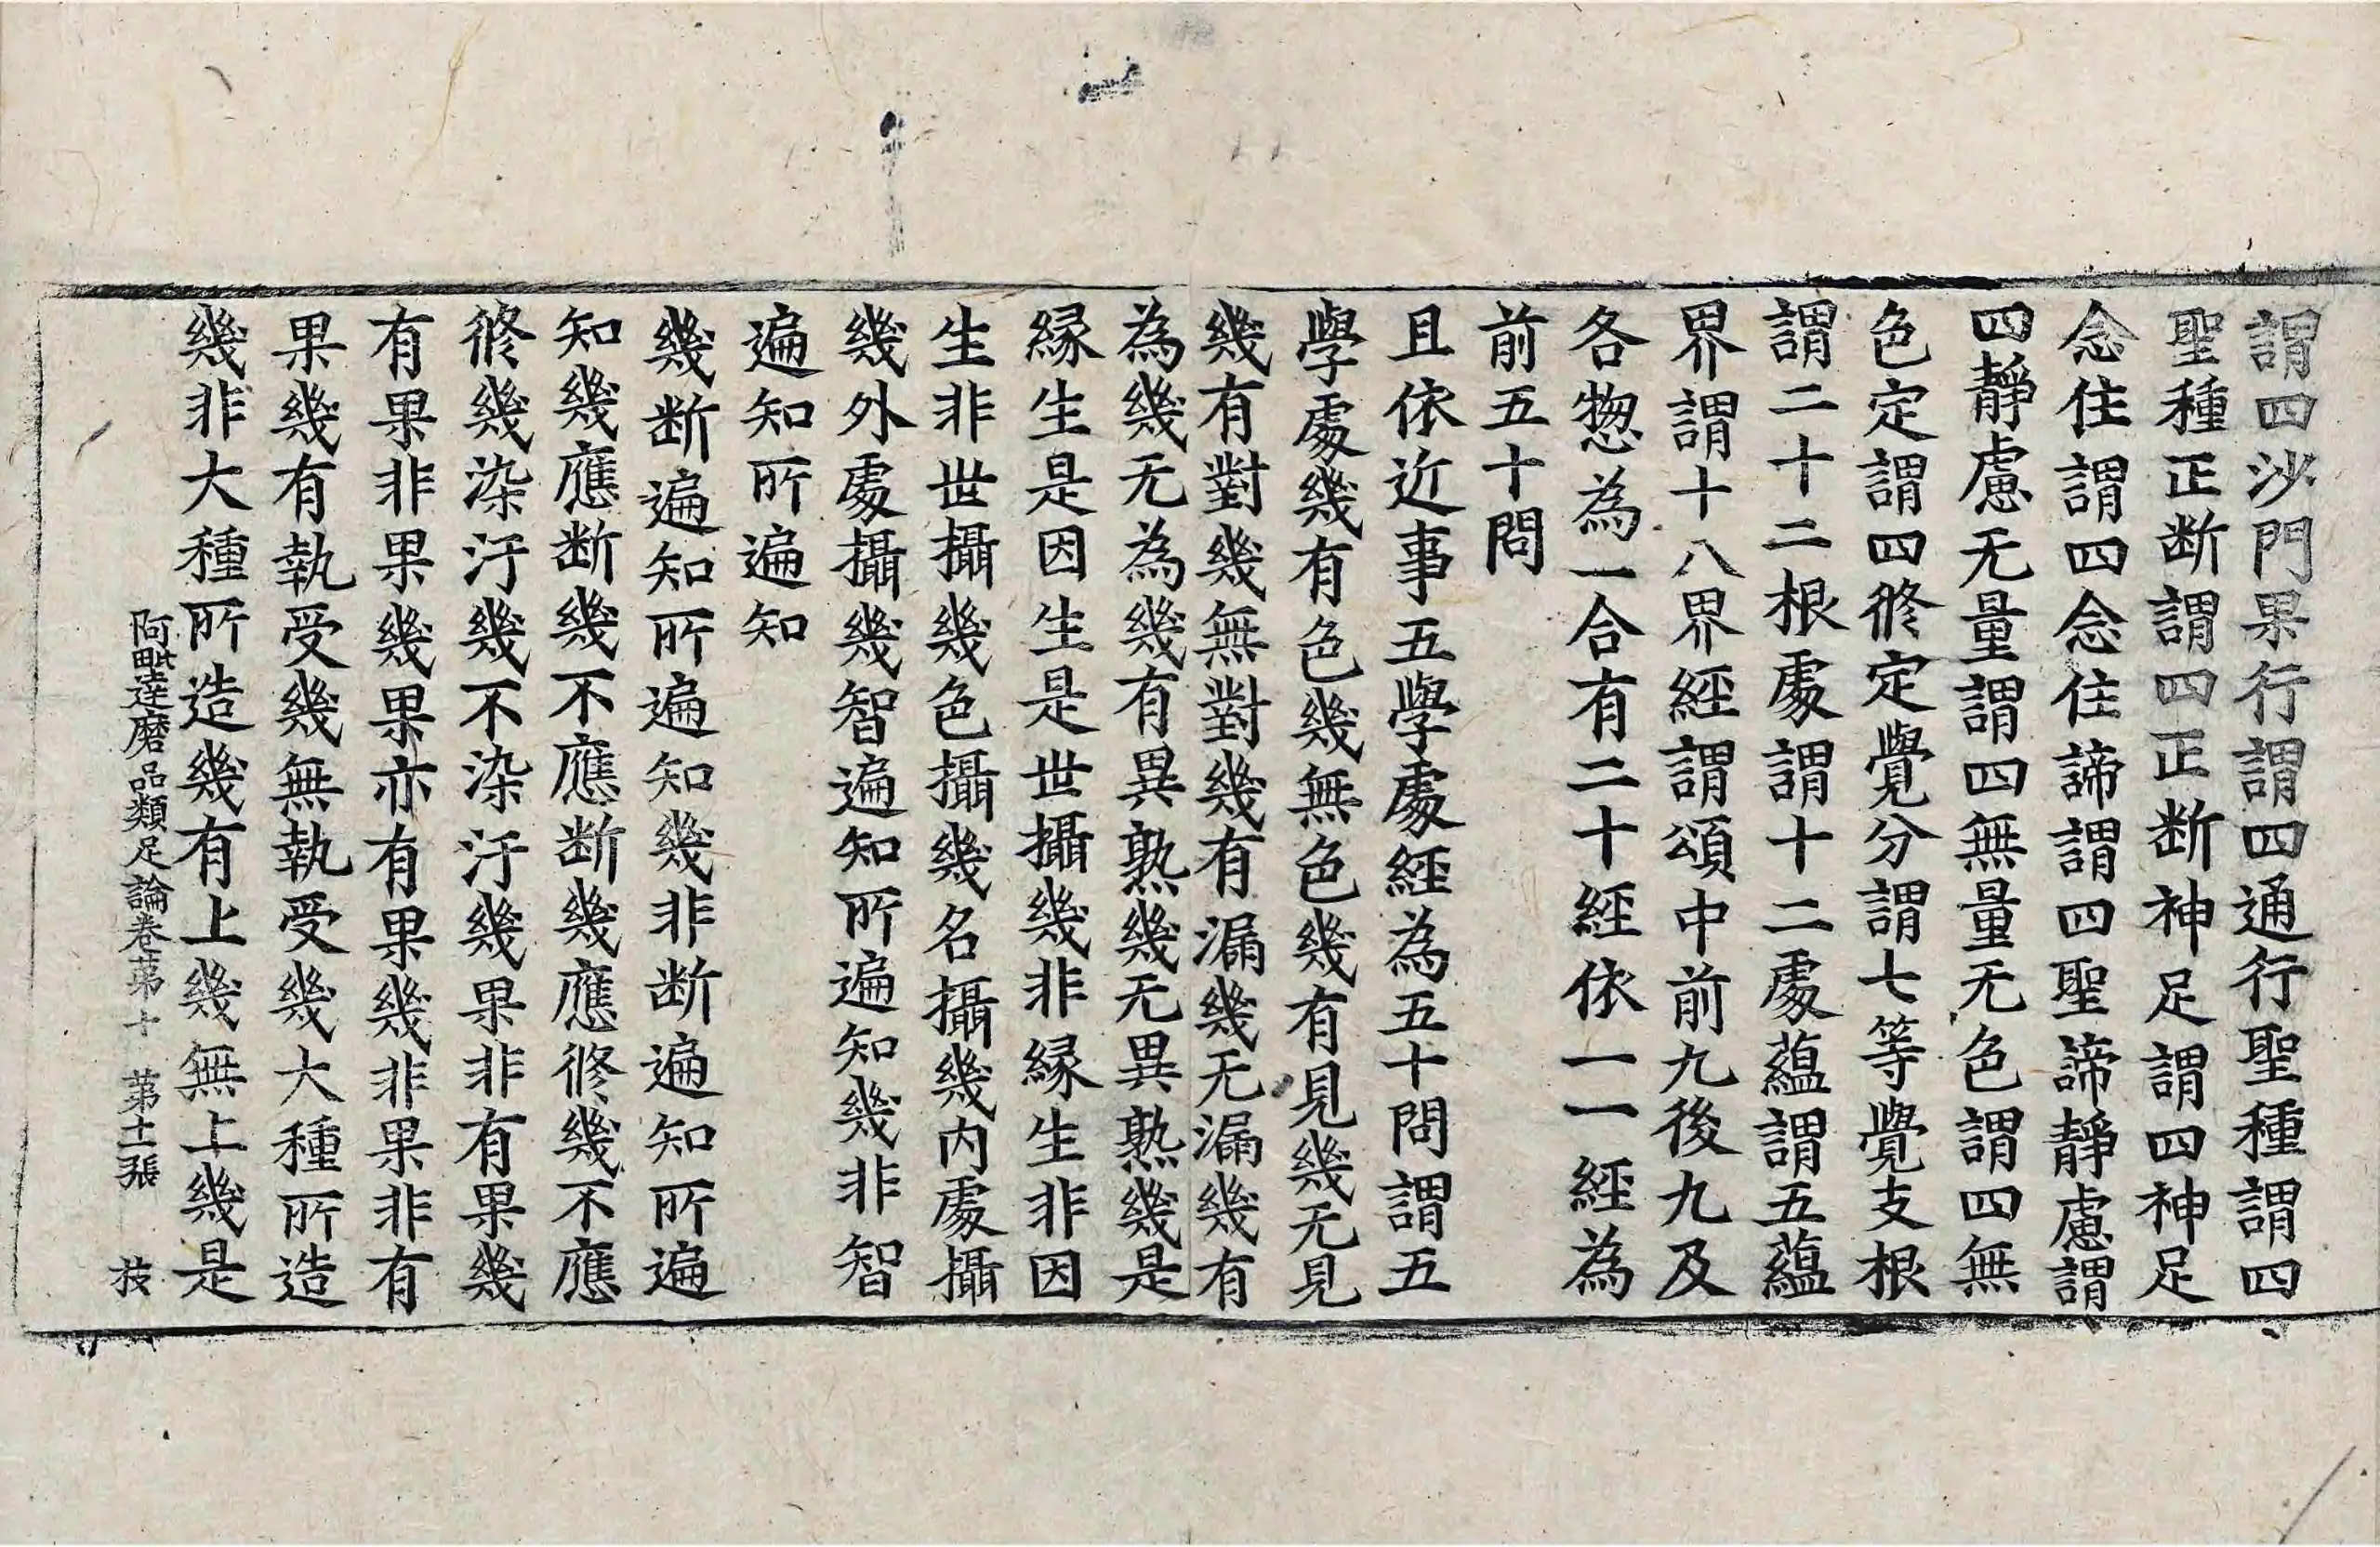 謂四沙門果行謂四通行聖種謂四
聖種正断謂四正断神足謂四神足
念住謂四念住諦謂四聖諦靜慮謂
四靜慮无量謂四無量无色謂四無
色定謂四修定覺分謂七等覺支根
謂二十二根處謂十二處蘊謂五蘊
界謂十八界經謂頌中前九後九及
各惣為一合有二十經依一一經為
前五十問
且依近事五學處經為五十問謂五
學處幾有色幾無色幾有見幾无見
幾有對幾無對幾有漏幾无漏幾有
為幾无為幾有異熟幾无異熟幾是
縁生是因生是世攝幾非縁生非因
生非世攝幾色攝幾名攝幾内處攝
幾外處攝幾智遍知所遍知幾非智
遍知所遍知
幾断遍知所遍知幾非断遍知所遍
知幾應断幾不應断幾應修幾不應
修幾染汙幾不染汙幾果非有果幾
有果非果幾果亦有果幾非果非有
果幾有執受幾無執受幾大種所造
幾非大種所造幾有上幾無上幾是
阿毗達磨品類足論卷苐十 苐十二張 技